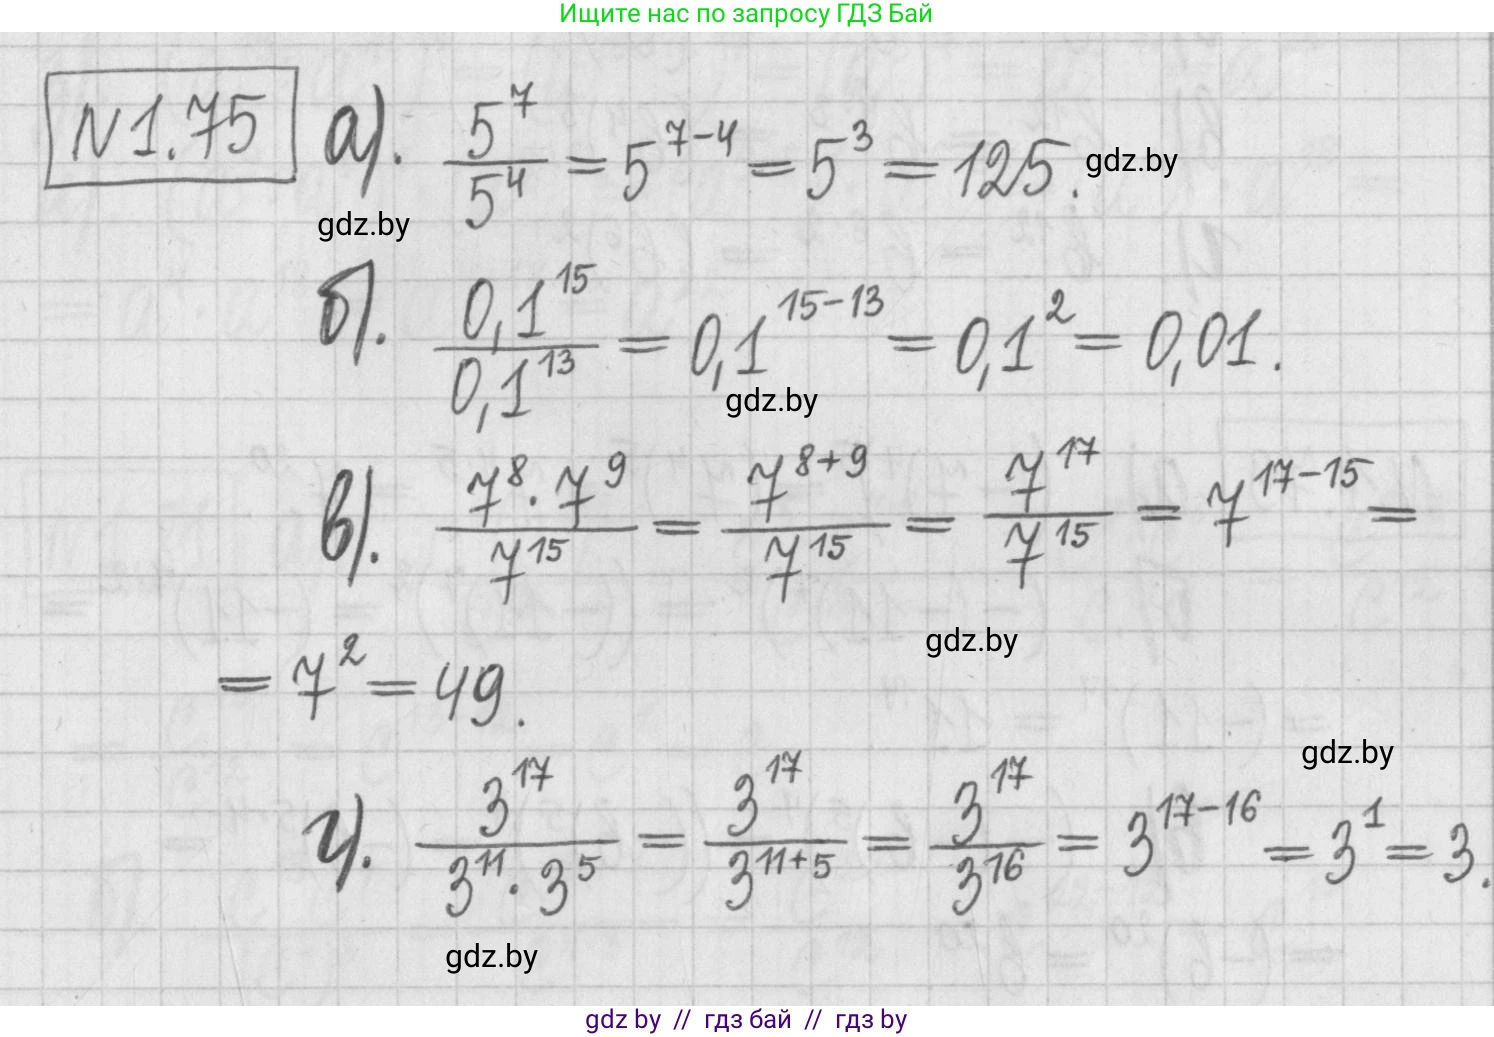 Ищите нас по запросу ГДЗ Бай
N 1.75 а). 5^7/5^4 = 5^(7-4) = 5^3 = 125. gdz.by
gdz.by
б). 0,1^15/0,1^13 = 0,1^(15-13) = 0,1^2 = 0,01.
gdz.by
в). 7^8 · 7^9/7^15 = 7^(8+9)/7^15 = 7^17/7^15 = 7^(17-15) =
gdz.by
= 7^2 = 49.
gdz.by
г). 3^17/3^11 · 3^5 = 3^17/3^(11+5) = 3^17/3^16 = 3^(17-16) = 3^1 = 3.
gdz.by
gdz by // гдз бай // гдз by